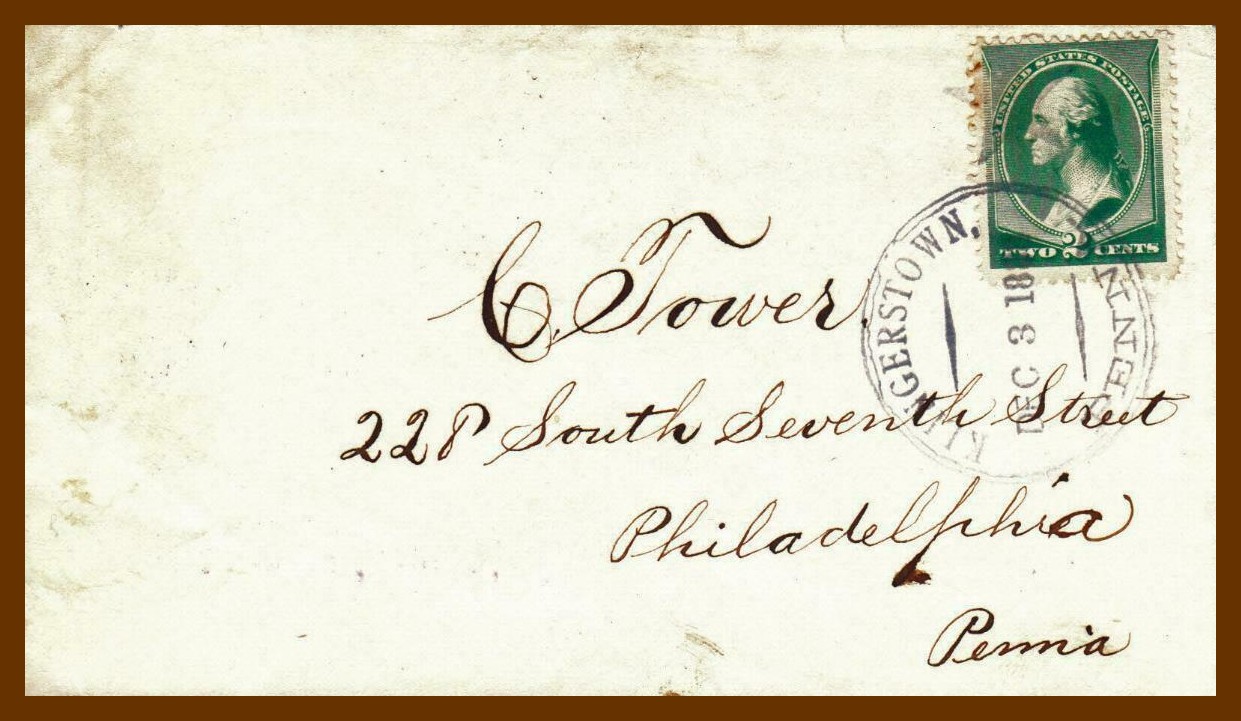 UNITED STATES POSTAGE
TWO 2 CENTS
KLINGERSTOWN, PENN
DEC 3 18
C. Tower.
228 South Seventh Street
Philadelphia
Penn'a